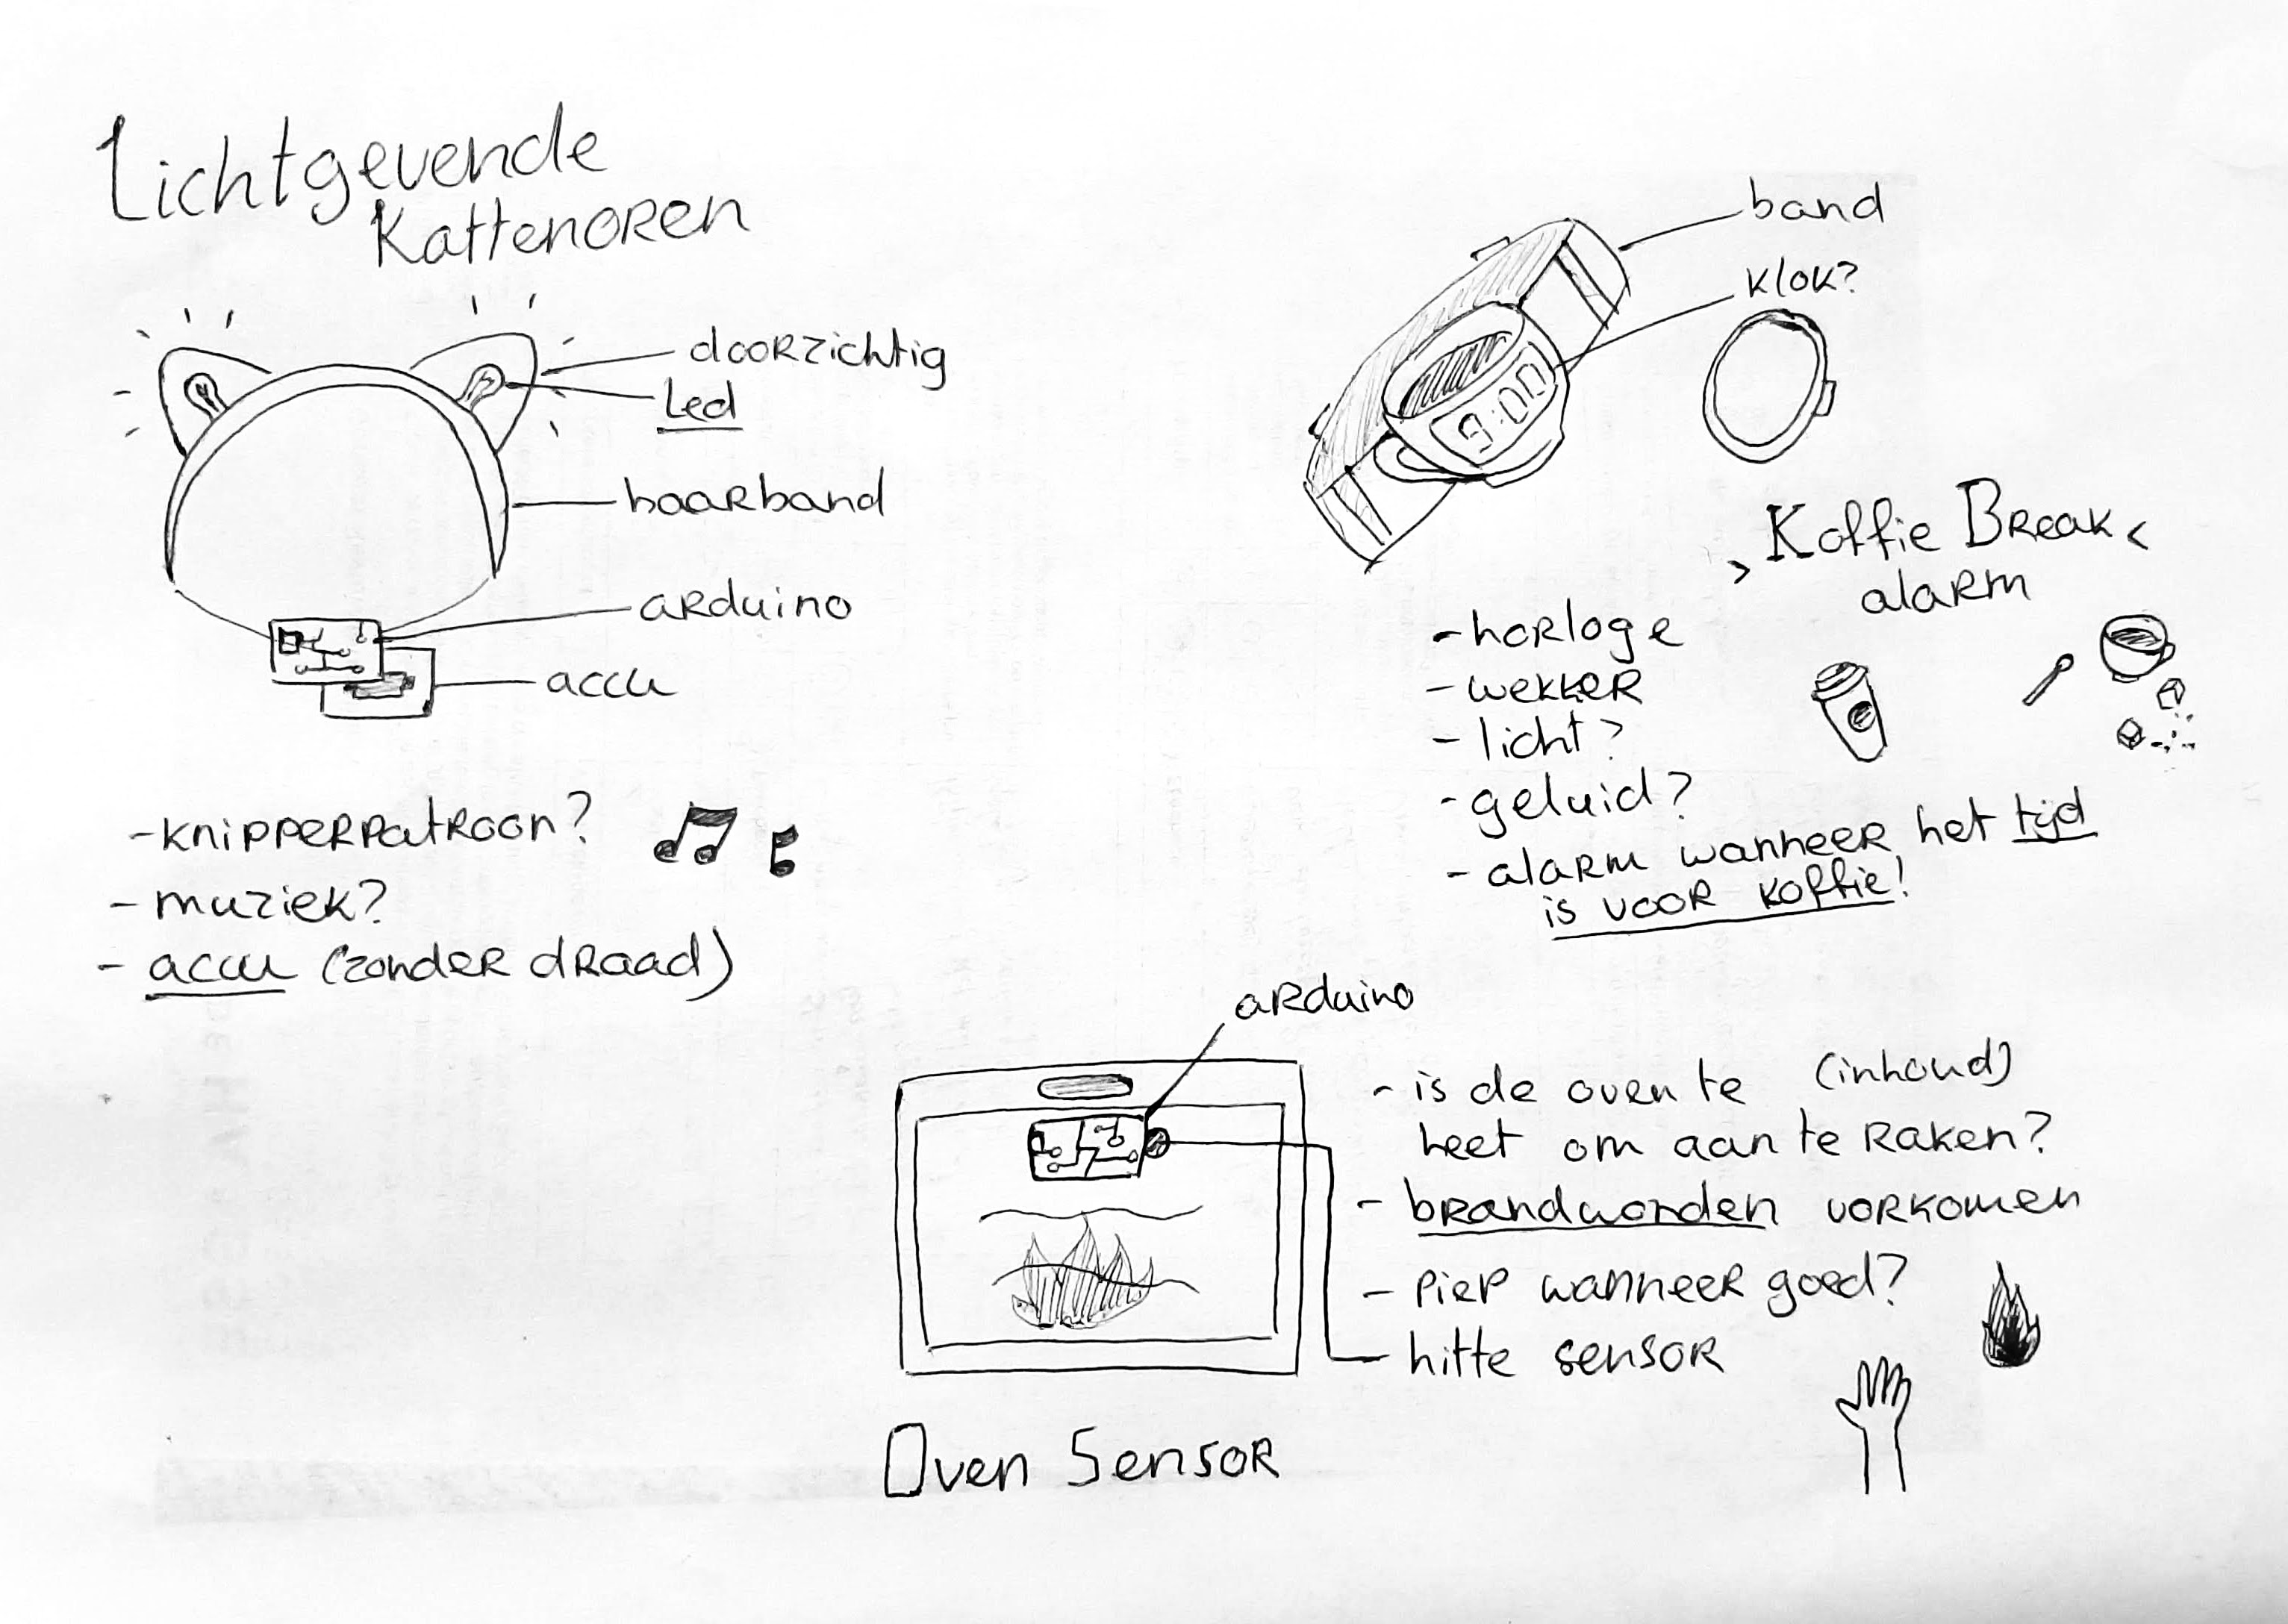 Lichtgevende
Kattenoren
doorzichtig
Led
haarband
arduino
accu
-knipperpatroon?
- muziek?
- accu (zonder draad)
band
klok?
9:00
> Koffie Break <
alarm
- horloge
- wekker
- licht?
- geluid?
- alarm wanneer het tijd
is voor koffie!
arduino
- is de oven te (inhoud)
heet om aan te raken?
- brandwonden vorkomen
- piep wanneer goed?
- hitte sensor
Oven Sensor